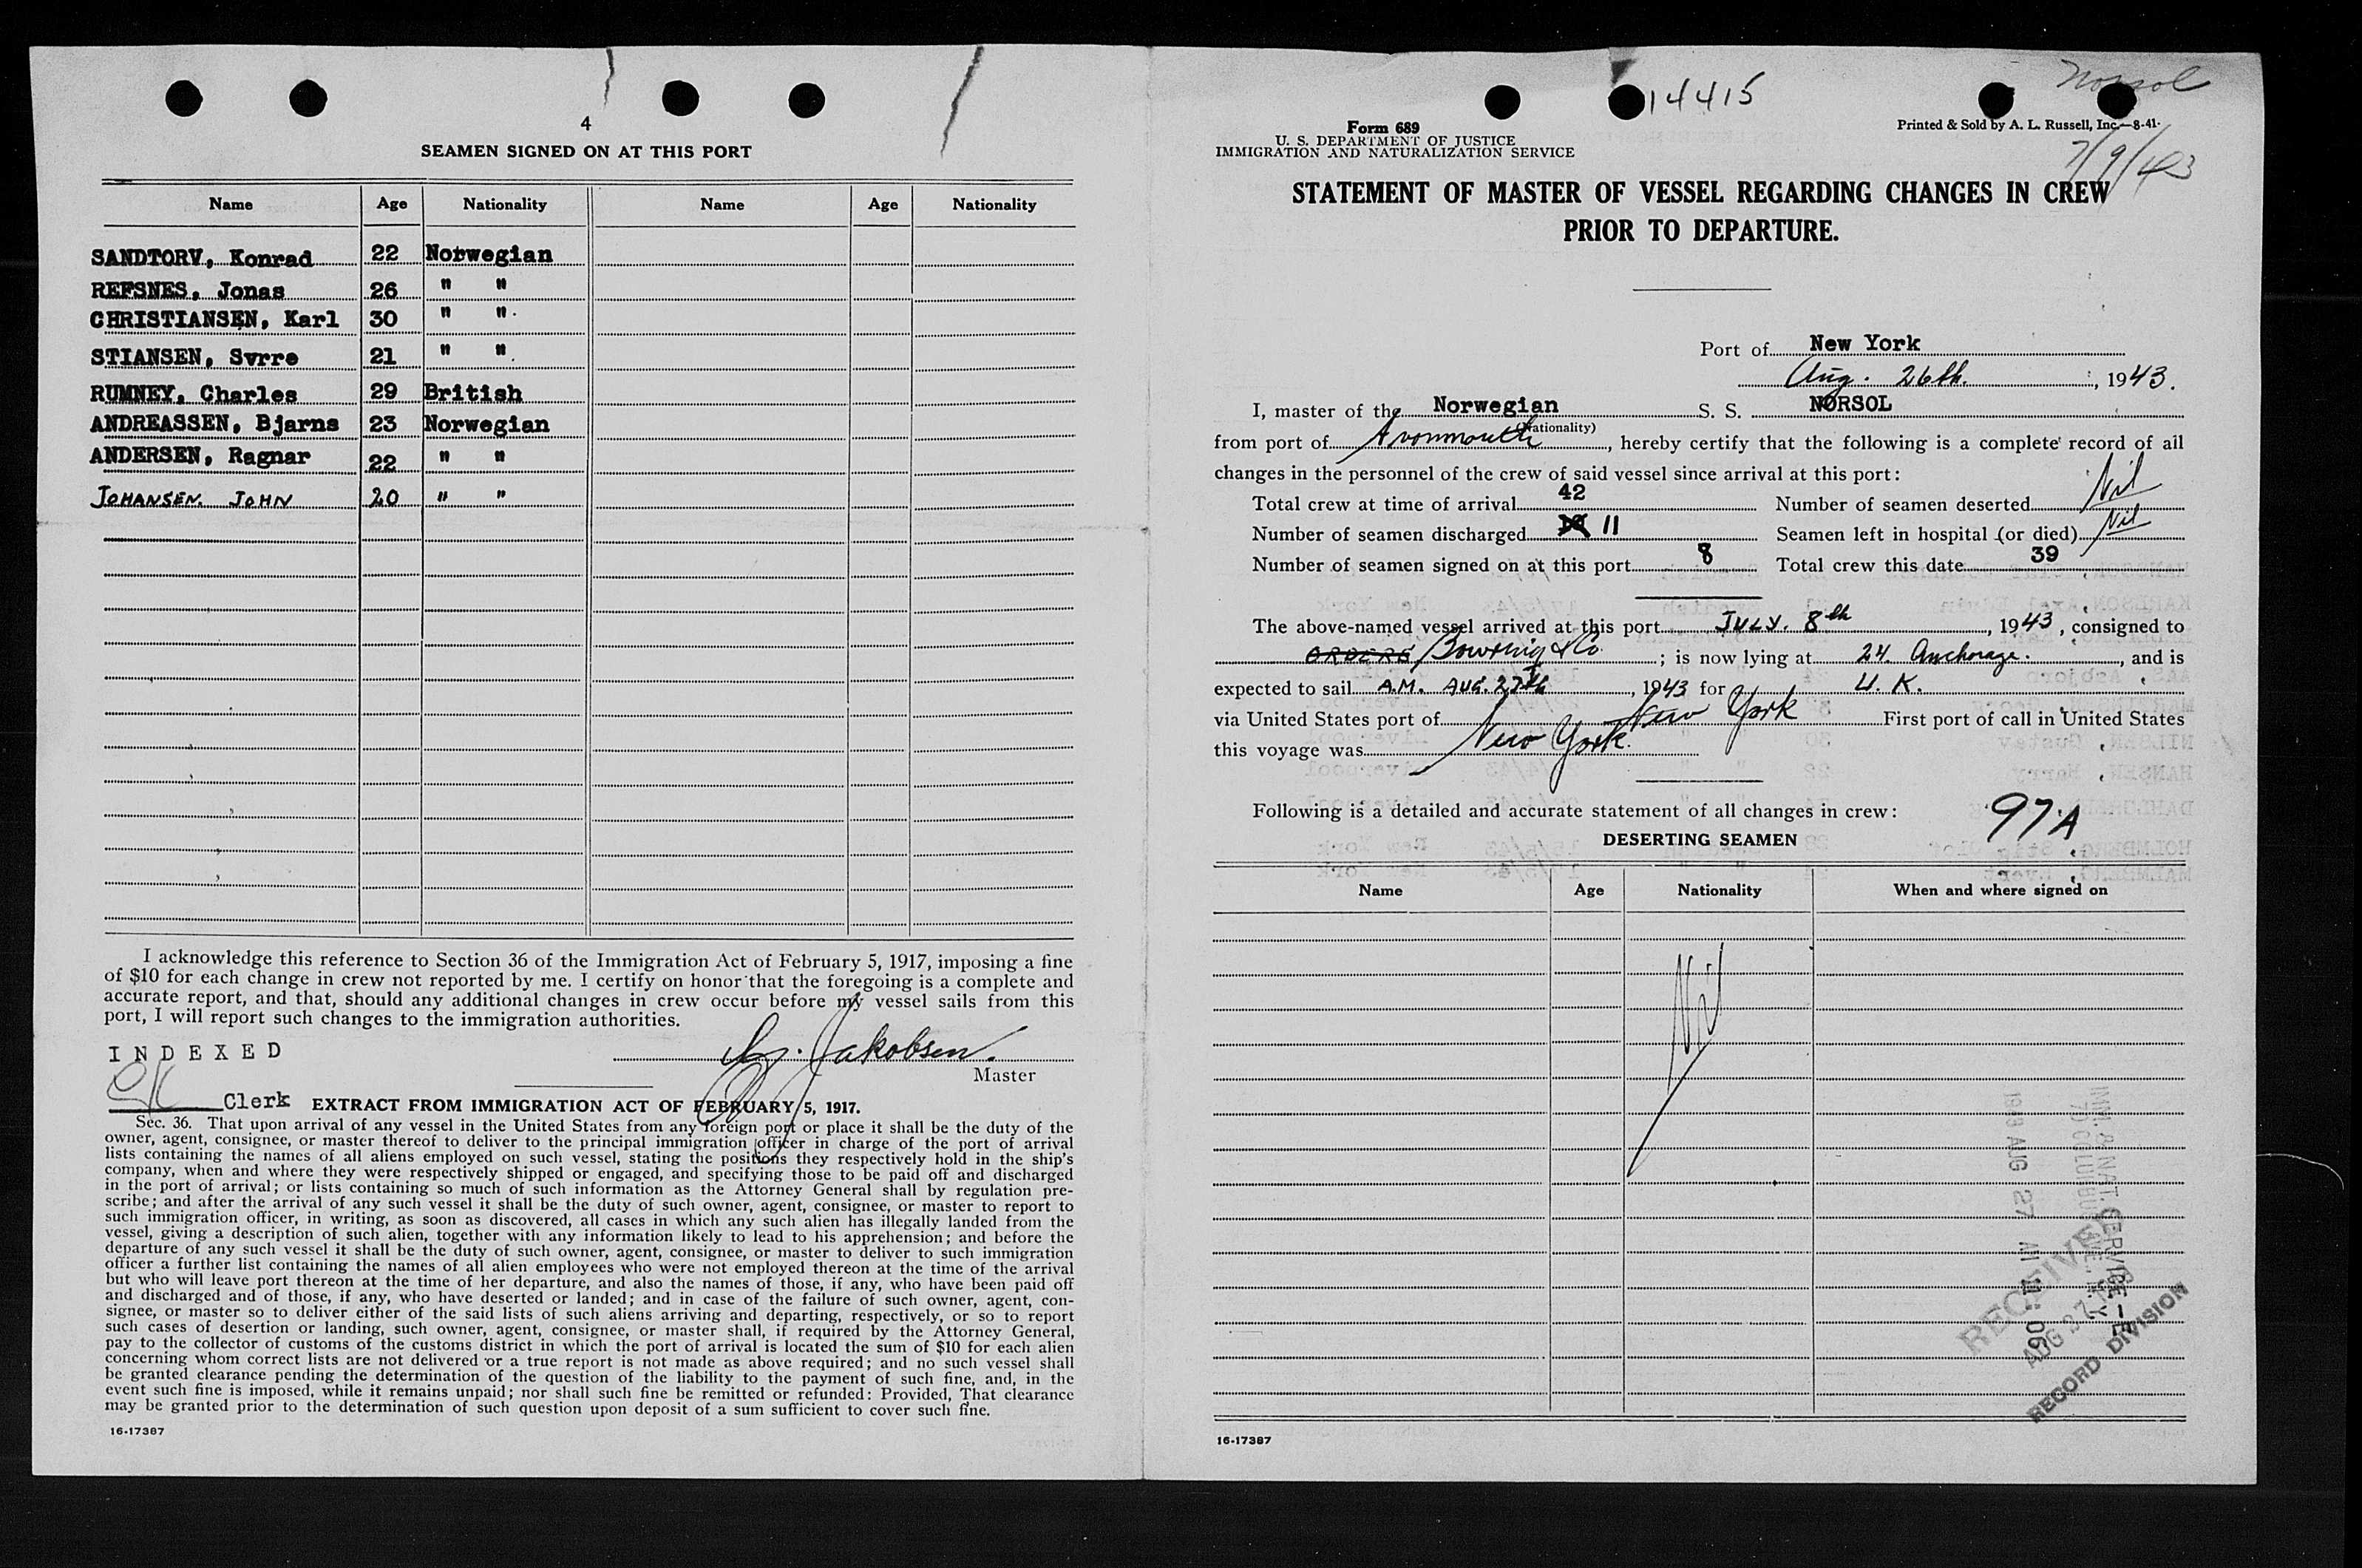 4
SEAMEN SIGNED ON AT THIS PORT
Name Age Nationality Name Age Nationality
SANDTORV, Konrad 22 Norwegian
REFSNES, Jonas 26 " "
CHRISTIANSEN, Karl 30 " "
STIANSEN, Svrre 21 " "
RUMNEY, Charles 29 British
ANDREASSEN, Bjarns 23 Norwegian
ANDERSEN, Ragnar 22 " "
JOHANSEN. JOHN 20 " "
I acknowledge this reference to Section 36 of the Immigration Act of February 5, 1917, imposing a fine
of $10 for each change in crew not reported by me. I certify on honor that the foregoing is a complete and
accurate report, and that, should any additional changes in crew occur before my vessel sails from this
port, I will report such changes to the immigration authorities.
INDEXED
Jakobsen.
Master
Clerk
EXTRACT FROM IMMIGRATION ACT OF FEBRUARY 5, 1917.
Sec. 36. That upon arrival of any vessel in the United States from any foreign port or place it shall be the duty of the
owner, agent, consignee, or master thereof to deliver to the principal immigration officer in charge of the port of arrival
lists containing the names of all aliens employed on such vessel, stating the positions they respectively hold in the ship's
company, when and where they were respectively shipped or engaged, and specifying those to be paid off and discharged
in the port of arrival; or lists containing so much of such information as the Attorney General shall by regulation pre-
scribe; and after the arrival of any such vessel it shall be the duty of such owner, agent, consignee, or master to report to
such immigration officer, in writing, as soon as discovered, all cases in which any such alien has illegally landed from the
vessel, giving a description of such alien, together with any information likely to lead to his apprehension; and before the
departure of any such vessel it shall be the duty of such owner, agent, consignee, or master to deliver to such immigration
officer a further list containing the names of all alien employees who were not employed thereon at the time of the arrival
but who will leave port thereon at the time of her departure, and also the names of those, if any, who have been paid off
and discharged and of those, if any, who have deserted or landed; and in case of the failure of such owner, agent, con-
signee, or master so to deliver either of the said lists of such aliens arriving and departing, respectively, or so to report
such cases of desertion or landing, such owner, agent, consignee, or master shall, if required by the Attorney General,
pay to the collector of customs of the customs district in which the port of arrival is located the sum of $10 for each alien
concerning whom correct lists are not delivered or a true report is not made as above required; and no such vessel shall
be granted clearance pending the determination of the question of the liability to the payment of such fine, and, in the
event such fine is imposed, while it remains unpaid; nor shall such fine be remitted or refunded: Provided, That clearance
may be granted prior to the determination of such question upon deposit of a sum sufficient to cover such fine.
16-17387
Norsol
14415
Form 689
Printed & Sold by A. L. Russell, Inc.—8-41.
U. S. DEPARTMENT OF JUSTICE
IMMIGRATION AND NATURALIZATION SERVICE
7/9/43
STATEMENT OF MASTER OF VESSEL REGARDING CHANGES IN CREW
PRIOR TO DEPARTURE.
Port of New York
Aug. 26th., 1943.
I, master of the Norwegian S. S. NORSOL
(Nationality)
from port of Avonmouth, hereby certify that the following is a complete record of all
changes in the personnel of the crew of said vessel since arrival at this port:
Total crew at time of arrival 42 Number of seamen deserted Nil
Number of seamen discharged 11 Seamen left in hospital (or died) Nil
Number of seamen signed on at this port 8 Total crew this date 39
The above-named vessel arrived at this port JULY. 8th, 1943, consigned to
ORDERS Bowring & Co.; is now lying at 24. Anchorage., and is
expected to sail A.M. AUG. 27th, 1943 for U. K.
via United States port of New York First port of call in United States
this voyage was New York.
Following is a detailed and accurate statement of all changes in crew:
97A
DESERTING SEAMEN
Name Age Nationality When and where signed on
Nil
IMM. & NAT. SERVICE—E
1943 AUG 27 AM 11 06
RECEIVED
AUG 27
RECORD DIVISION
16-17387